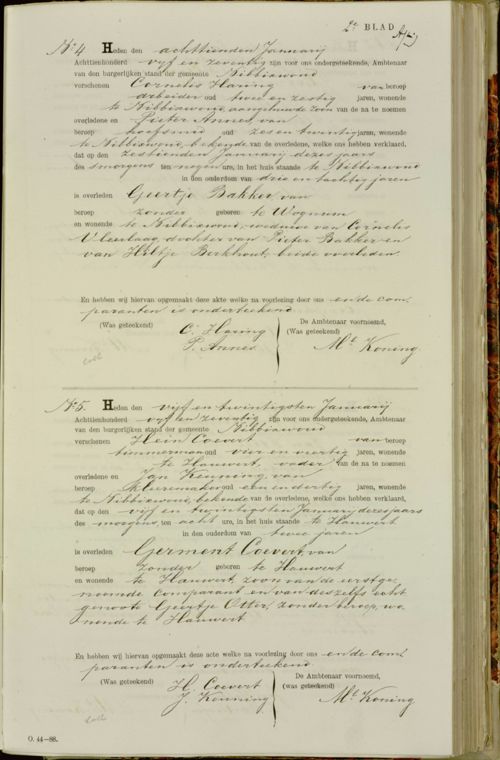 2e BLAD
No. 4 Heden den achttienden Januarij
Achttienhonderd vyf en zeventig zijn voor ons ondergeteekende, Ambtenaar
van den burgerlijken stand der gemeente Nibbixwoud
verschenen Cornelis Haring van beroep
arbeider oud twee en zestig jaren, wonende
te Nibbixwoud, aangehuwde zoon van de na te noemen
overledene en Pieter Annes, van
beroep hoefsmid oud zes en twintig jaren, wonende
te Nibbixwoud, bekende van de overledene, welke ons hebben verklaard,
dat op den zestienden Januarij dezes jaars
des smorgens ten negen ure, in het huis staande te Nibbixwoud
in den ouderdom van drie en tachtig jaren
is overleden Geertje Bakker van
beroep zonder geboren te Wognum
en wonende te Nibbixwoud, weduwe van Cornelis
Vleerlaag, dochter van Pieter Bakker en
van Hiltje Berkhout, beide overleden.
En hebben wij hiervan opgemaakt deze akte welke na voorlezing door ons en de com
paranten is onderteekend
(Was geteekend) C. Haring
P. Annes
De Ambtenaar voornoemd,
(Was geteekend)
Mt. Koning
No. 5. Heden den vijf en twintigsten Januarij
Achttienhonderd vyf en zeventig zijn voor ons ondergeteekende, Ambtenaar
van den burgerlijken stand der gemeente Nibbixwoud
verschenen Hein Coevert van beroep
timmerman oud vier en veertig jaren, wonende
te Hauwert, vader van de na te noemen
overledene en Jan Keuning, van
beroep kleermaker oud een en dertig jaren, wonende
te Nibbixwoud, bekende van de overledene, welke ons hebben verklaard,
dat op den vijf en twintigsten Januarij dezes jaars
des smorgens, ten acht ure, in het huis staande te Hauwert
in den ouderdom van twee jaren
is overleden Germent Coevert, van
beroep zonder geboren te Hauwert
en wonende te Hauwert, zoon van de eerstge
noemde comparant en van deszelfs echt
genoote Geertje Otter, zonder beroep, wo
nende te Hauwert
En hebben wij hiervan opgemaakt deze acte welke na voorlezing door ons en de com
paranten is onderteekend
(Was geteekend) H. Coevert
J. Keuning
De Ambtenaar voornoemd,
(was geteekend)
Mt. Koning
O. 44—88.